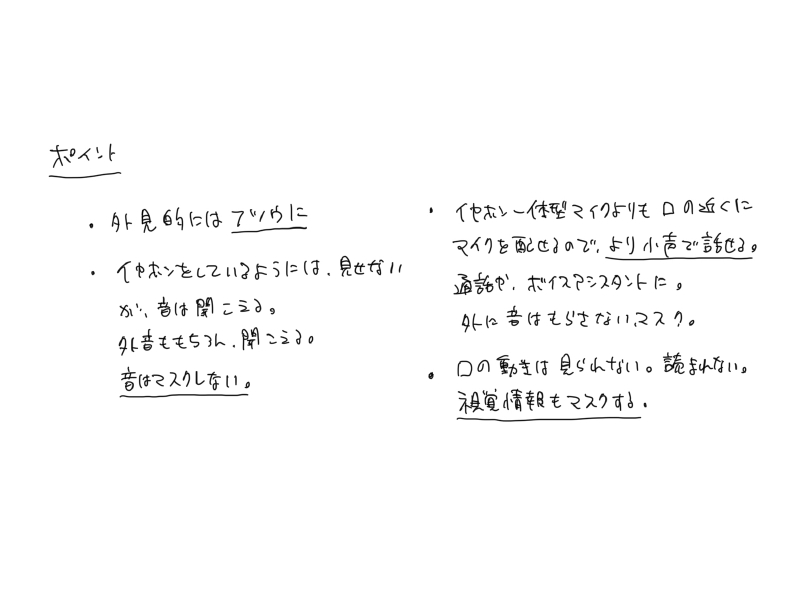 ポイント
・外見的にはフツウに
・イヤホンをしているようには、見せない
が、音は聞こえる。
外音ももちろん、聞こえる。
音はマスクしない。
・イヤホン一体型マイクよりも口の近くに
マイクを配せるので、より小声で話せる。
通話や、ボイスアシスタントに。
外に音はもらさないマスク。
・口の動きは見られない。読まれない。
視覚情報もマスクする。